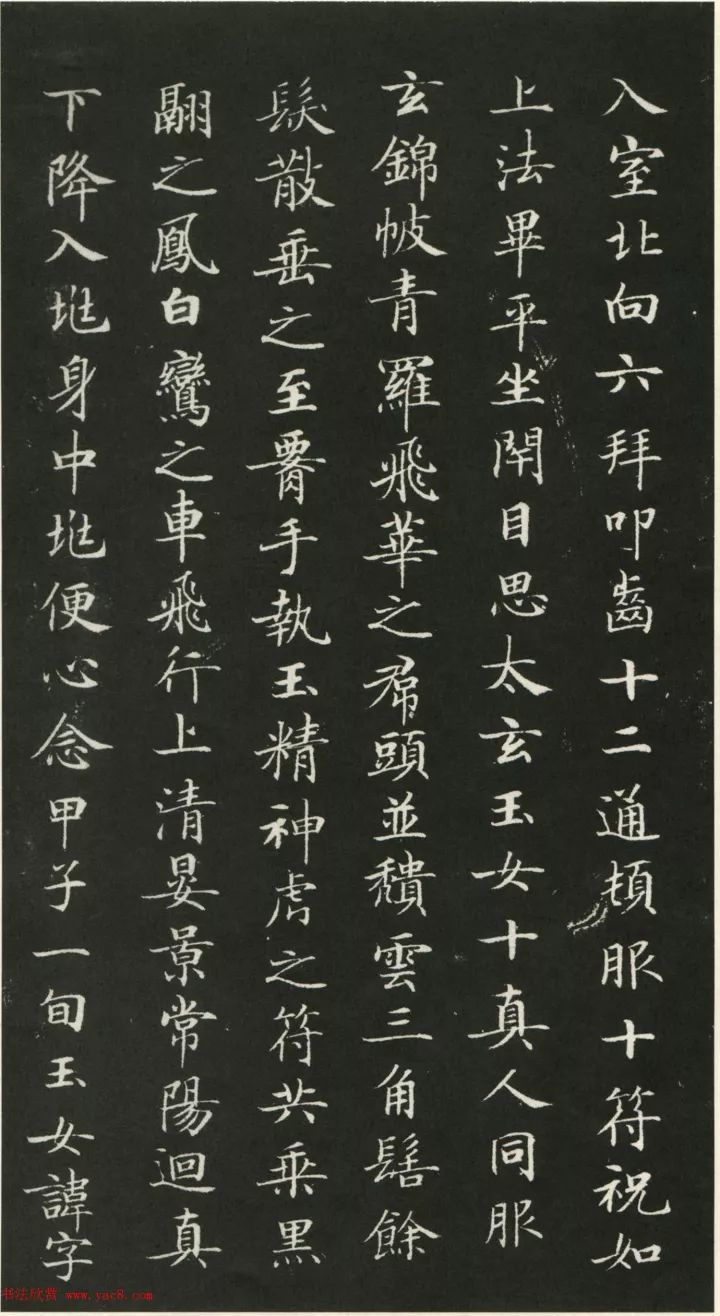 入室北向六拜叩齒十二通頓服十符祝如
上法畢平坐閇目思太玄玉女十真人同服
玄錦帔青羅飛華之帬頭並穨雲三角髻餘
髮散垂之至腰手執玉精神虎之符共乗黒
翮之鳳白鸞之車飛行上清晏景常陽迴真
下降入兆身中兆便心念甲子一旬玉女諱字
书法欣赏 www.yac8.com